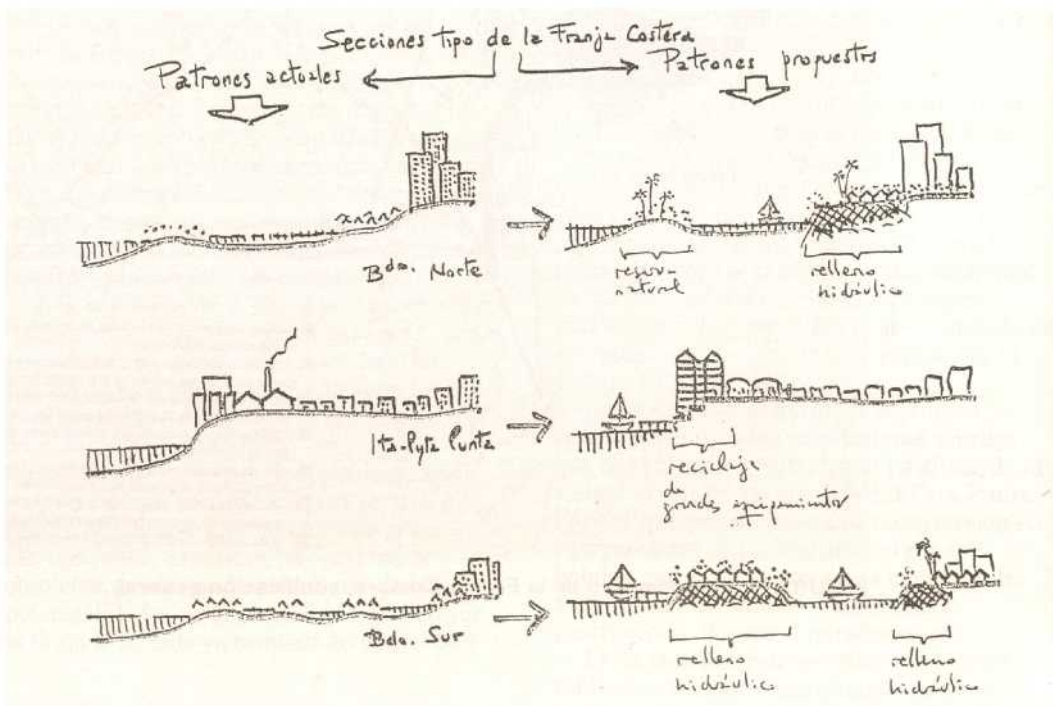 Secciones tipo de la Franja Costera
Patrones actuales
Patrones propuestos
Bdo. Norte
reserv.
natural
relleno
hidráulico
Ita-Pyta Punta
reciclaje
de
grandes equipamientos
Bdo. Sur
relleno
hidráulico
relleno
hidráulico